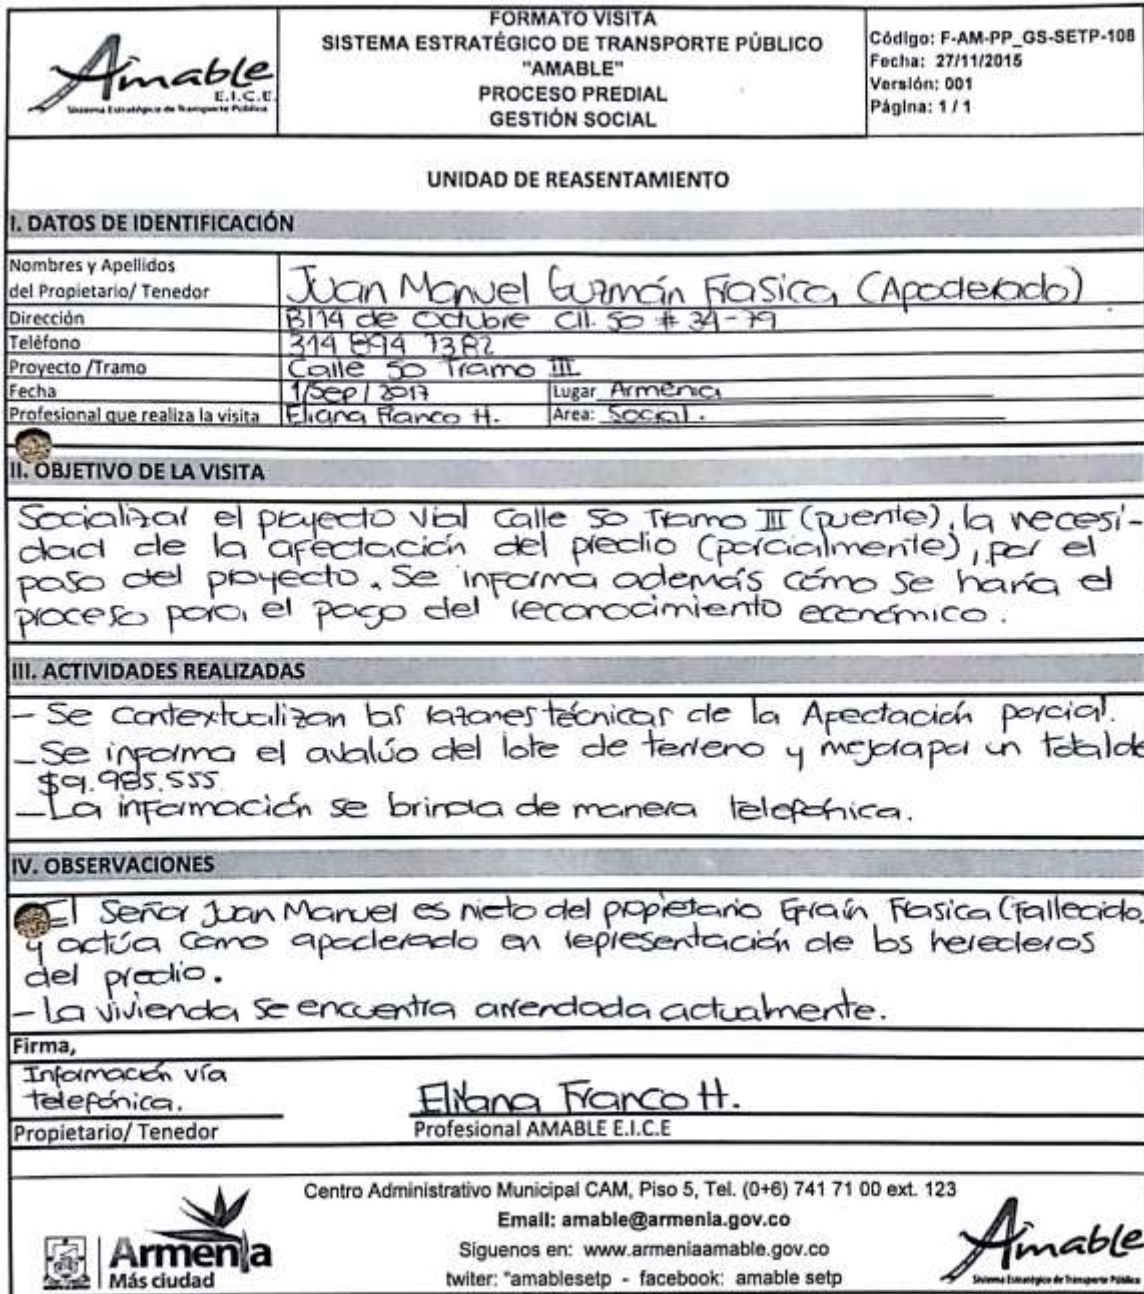 Amable
E.I.C.E.
Sistema Estratégico de Transporte Público
FORMATO VISITA
SISTEMA ESTRATÉGICO DE TRANSPORTE PÚBLICO
"AMABLE"
PROCESO PREDIAL
GESTIÓN SOCIAL
Código: F-AM-PP_GS-SETP-108
Fecha: 27/11/2015
Versión: 001
Página: 1 / 1
UNIDAD DE REASENTAMIENTO
I. DATOS DE IDENTIFICACIÓN
Nombres y Apellidos
del Propietario/ Tenedor Juan Manuel Guzmán Frasica (Apoderado)
Dirección B/14 de Octubre Cll. 50 # 34-79
Teléfono 314 894 7382
Proyecto /Tramo Calle 50 Tramo III
Fecha 1/Sep/2017 Lugar Armenia
Profesional que realiza la visita Eliana Franco H. Area: Social.
II. OBJETIVO DE LA VISITA
Socializar el proyecto vial Calle 50 Tramo III (puente), la necesi-
dad de la afectación del predio (parcialmente), por el
paso del proyecto. Se informa además cómo se haría el
proceso para el pago del reconocimiento económico.
III. ACTIVIDADES REALIZADAS
- Se contextualizan las razones técnicas de la Afectación parcial.
- Se informa el avalúo del lote de terreno y mejora por un total de
$9.985.555
- La información se brinda de manera telefónica.
IV. OBSERVACIONES
El Señor Juan Manuel es nieto del propietario Efraín Frasica (Fallecido,
y actúa como apoderado en representación de los herederos
del predio.
- La vivienda se encuentra arrendada actualmente.
Firma,
Información vía
telefónica.
Eliana Franco H.
Propietario/ Tenedor Profesional AMABLE E.I.C.E
Centro Administrativo Municipal CAM, Piso 5, Tel. (0+6) 741 71 00 ext. 123
Email: amable@armenia.gov.co
Siguenos en: www.armeniaamable.gov.co
twiter: "amablesetp - facebook: amable setp
Armenia
Más ciudad
Amable
Sistema Estratégico de Transporte Público